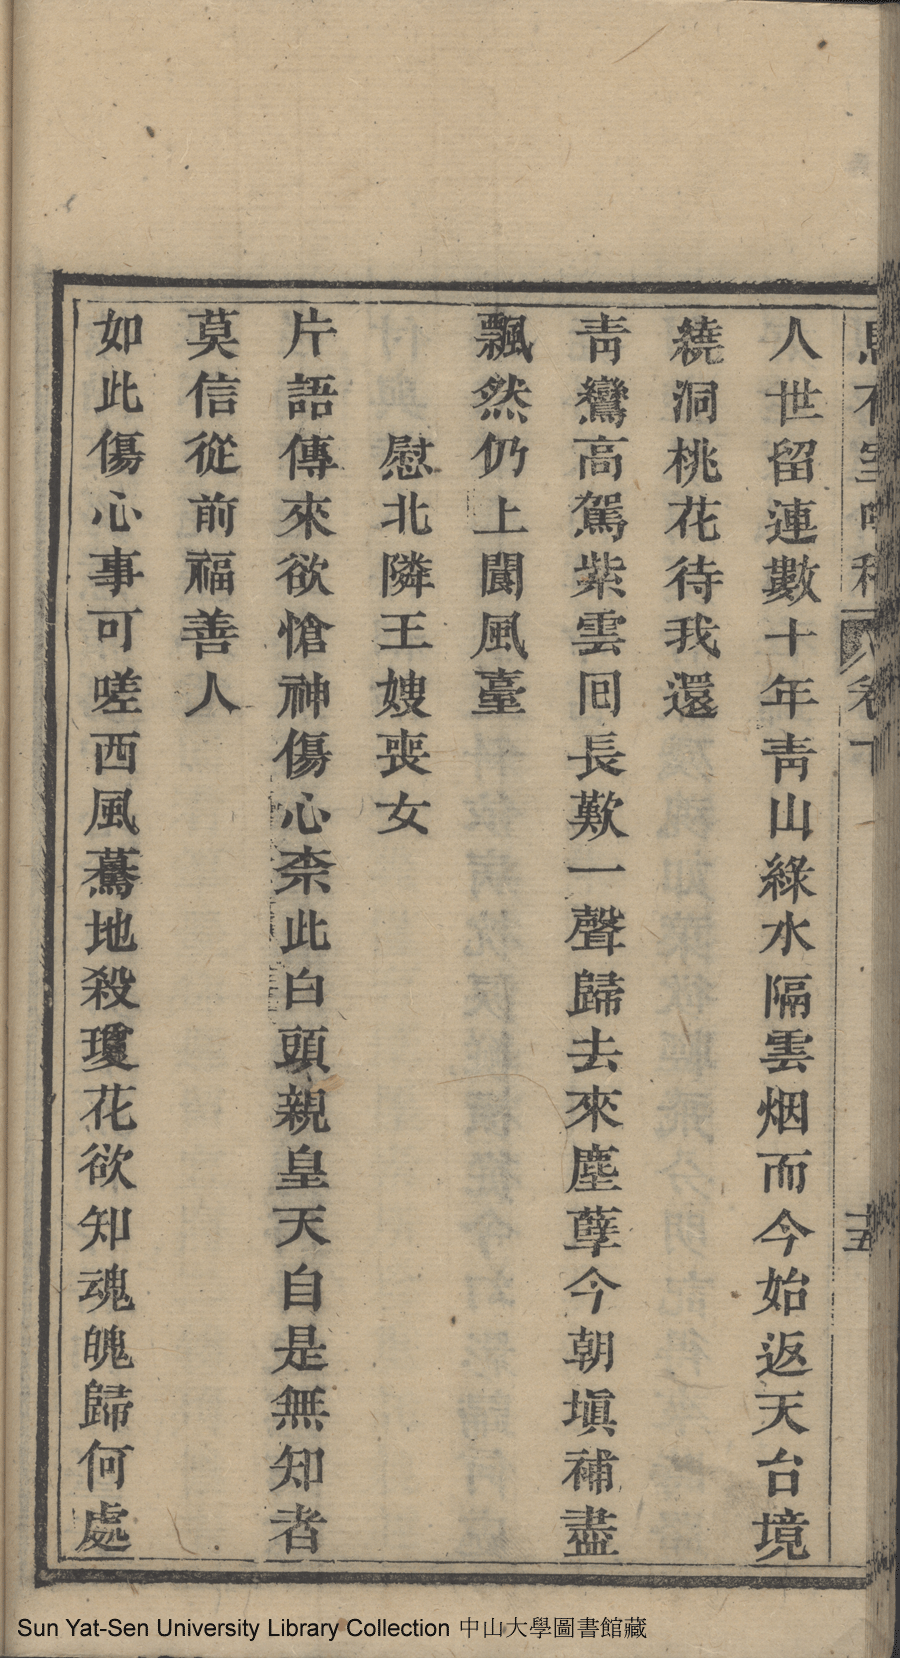 人世留連數十年靑山綠水隔雲烟而今始返天台境
繞洞桃花待我還
靑鸞高駕紫雲囘長歎一聲歸去來塵孽今朝塡補盡
飄然仍上閬風臺
慰北隣王嫂喪女
片語傳來欲愴神傷心柰此白頭親皇天自是無知者
莫信從前福善人
如此傷心事可嗟西風驀地殺瓊花欲知魂魄歸何處
Sun Yat-Sen University Library Collection 中山大學圖書館藏